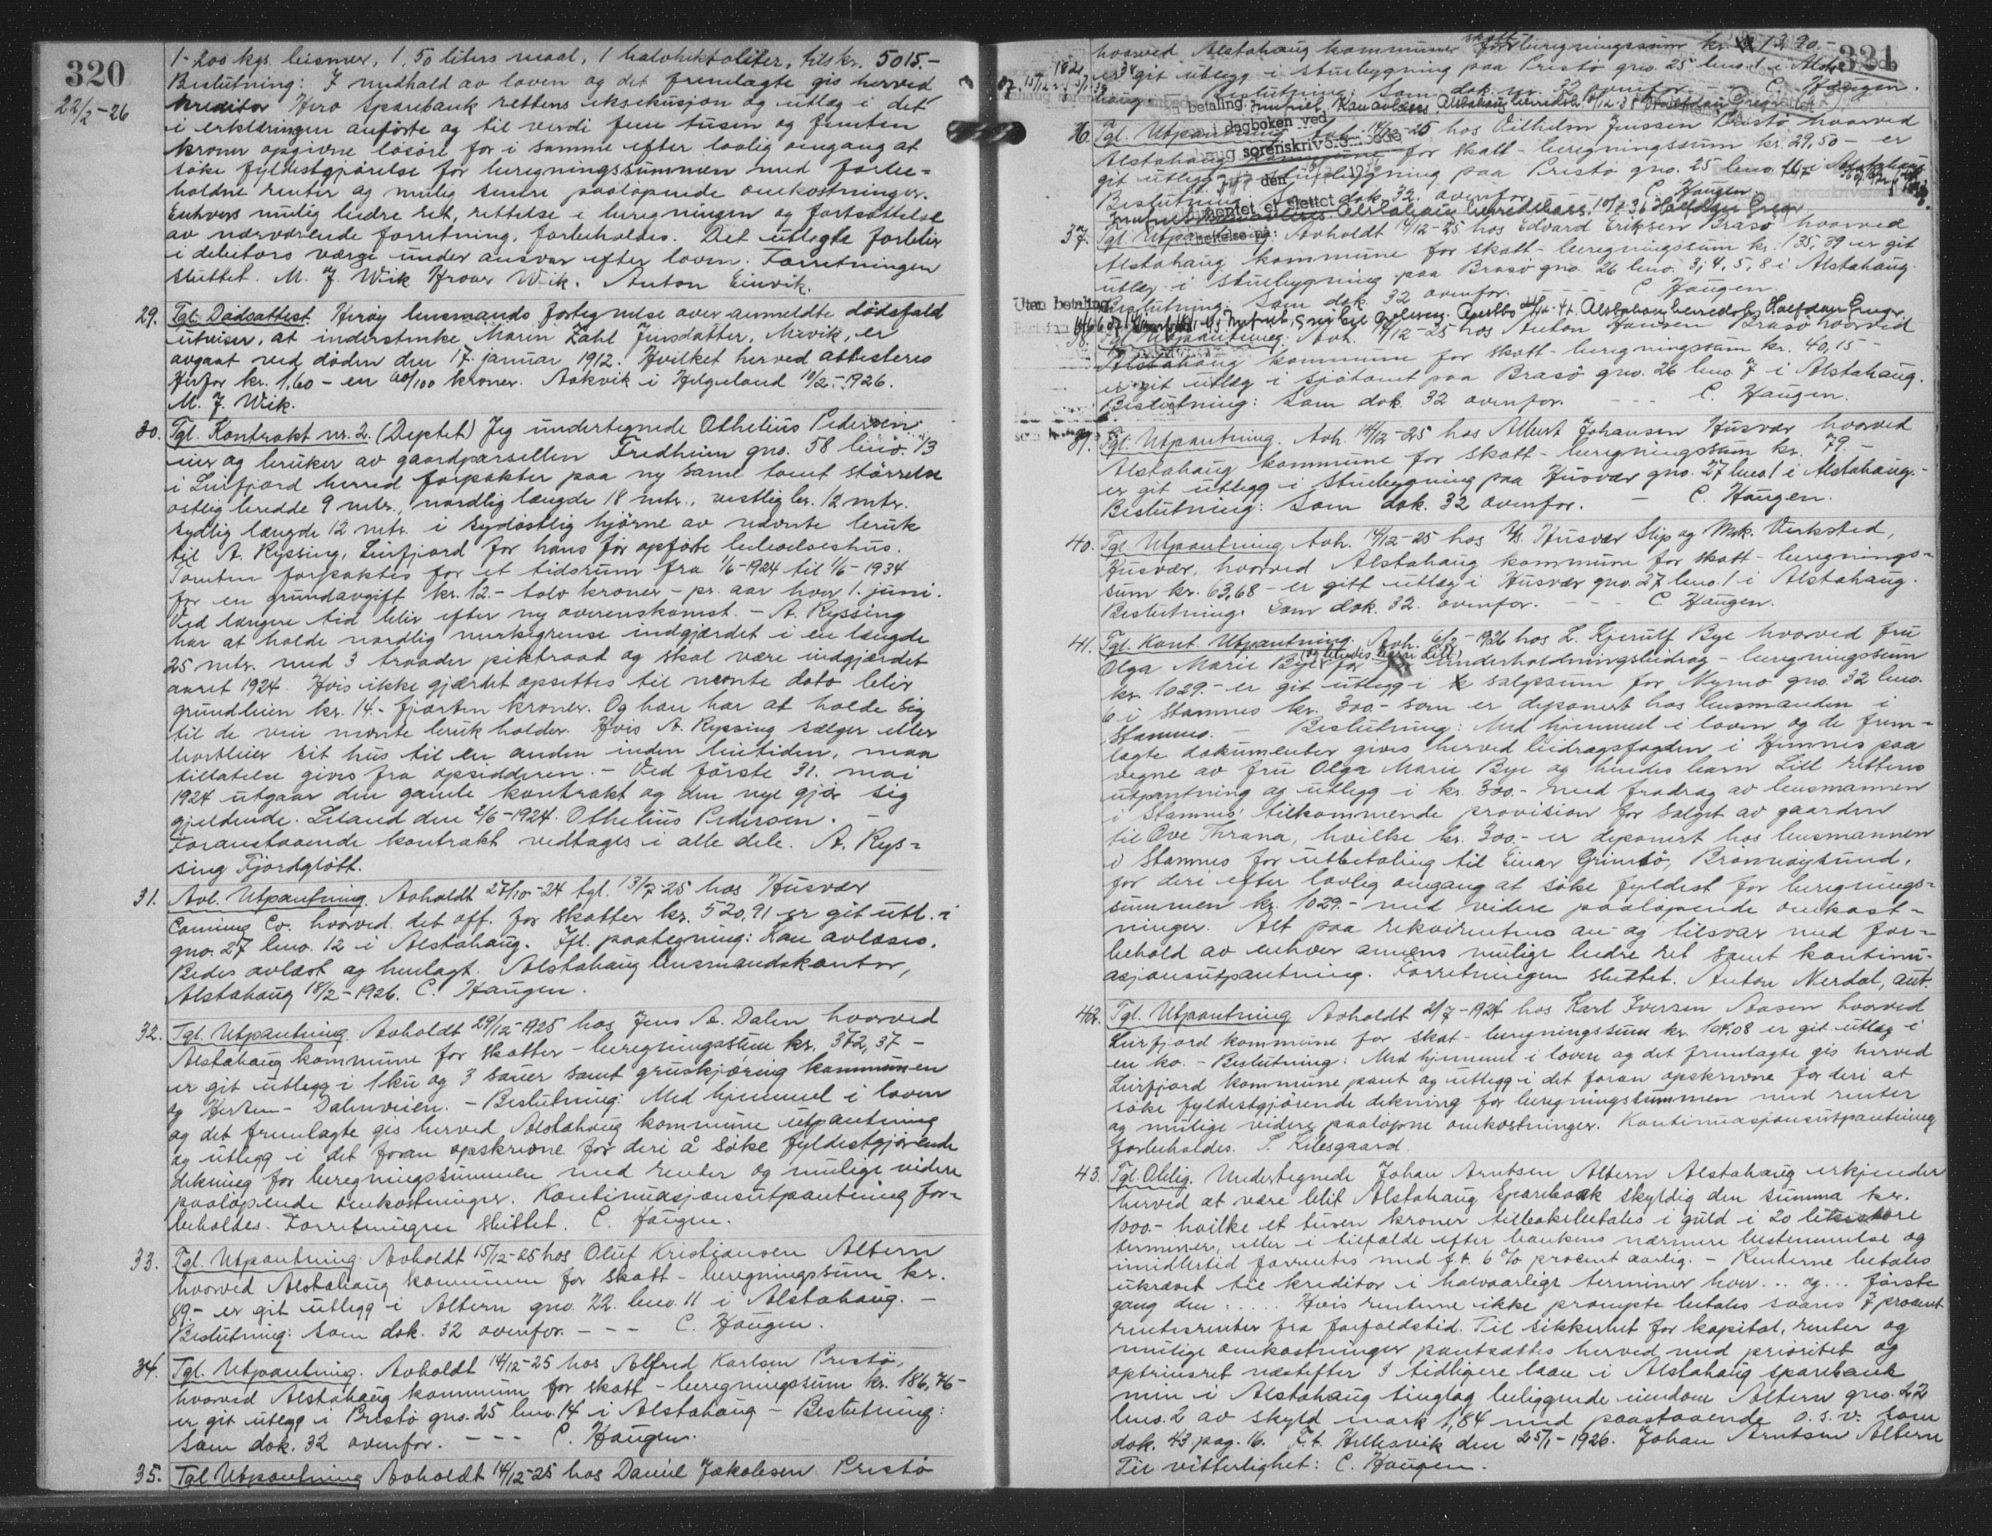 320
22/2-26
1- hos kgs. bismer, 1, 50 liters maal, 1 halvhektoliter, tils kr. 5015.-
Beslutning: I medhold av loven og det fremlagte gis herved
kreditor Herø Sparebank rettens eksekusjon og utlæg i det
i erklæringen anførte og til verdi fem tusen og femten
kroner opgivne løsøre for i samme efter lovlig omgang at
søke fyldestgjørelse for beregningssummen med forbe-
holdne renter og mulig senere paaløpende omkostninger.
Enhvers mulig bedre ret, rettelse i beregningen og fortsættelse
av nærværende forretning, forbeholdes. Det utlagte forblir
i debitors værge under ansvar efter loven. Forretningen
sluttet. M. J. Wik Hroar Wik. Anton Einvik.
29. Tgl. Dødsattest. Herøy lensmands fortegnelse over anmeldte dødsfald
utviser, at inderstenke Maren Zahl Jensdatter, Mevik, er
avgaat ved døden den 17. januar 1912. Hvilket herved attesteres
Herfor kr. 1.60 - en 60/100 kroner. Aakvik i Helgeland 10/2-1926.
M. J. Wik.
30. Tgl. Kontrakt nr. 2. (Duplet) Jeg undertegnede Othelius Pedersen
eier og bruker av gaardparsellen Fredheim gno. 58 bno. 13
i Leirfjord herred forpakter paa ny samt tomt størrelse
østlig bredde 9 mtr., nordlig længde 18 mtr., vestlig br. 12 mtr.
sydlig længde 12 mtr. i sydøstlig hjørne av nævnte bruk
til A. Ryssing, Leirfjord for hans før opførte beboelseshus.
Tomten forpaktes for et tidsrum fra 1/6-1924 til 1/6-1934
for en grundavgift kr. 12.- tolv kroner - pr. aar hver 1. juni.
Ved længere tid blir efter ny overenskomst. - A. Ryssing
har at holde nordlig merkegrense indgjærdet i en længde
25 mtr. med 3 traader piktraad og skal være indgjærdet
aaret 1924. Hvis ikke gjærdet opsettes til nevnte dato blir
grundleien kr. 14.- fjorten kroner. Og han har at holde sig
til de veie nevnte bruk holder. Hvis A. Ryssing sælger eller
bortleier sit hus til en anden inden leietiden, maa
tillatelse gives fra opsidderen. - Ved første 31. mai
1924 utgaar den gamle kontrakt og den nye gjør sig
gjeldende. Leland den 2/6-1924. Othelius Pedersen. -
Foranstaaende kontrakt vedtages i alle dele. A. Rys-
sing Fjordgløtt.
31. Avl. Utpantning. Avholdt 27/10-24 tgl. 13/7-25 hos Husvær
Caning Co. hvorved det off. for skatter kr. 520,91 er git utl. i
gno. 27 bno. 12 i Alstahaug. Ifl. paategning: Kan avlæses.
Bedes avlæst og henlagt. Alstahaug lensmandskontor,
Alstahaug 18/2-1926. C. Haugen.
32. Tgl. Utpantning. Avholdt 29/12-1925 hos Jens A. Dalen hvorved
Alstahaug kommune for skatter - beregningssum kr. 372,37 -
er git utlegg i 1 ku og 3 sauer samt gruskjøring kommunen
og Herten- Dalenveien. - Beslutning: Med hjemmel i loven
og det fremlagte ges herved Alstahaug kommune utpantning
og utlegg i det foran opskrevne for deri å søke fyldestgjørende
dekning for beregningssummen med renter og mulige videre
paaløpende omkostninger. Kontinuasjonsutpantning for-
beholdes. Forretningen sluttet. C. Haugen.
33. Tgl. Utpantning. Avholdt 15/12-25 hos Oluf Kristiansen Altern
hvorved Alstahaug kommune for skatt - beregningssum kr.
89.- er git utlegg i Altern gno. 22. bno. 11 i Alstahaug. -
Beslutning: som dok. 32 ovenfor. - - - C. Haugen.
34. Tgl. Utpantning. Avholdt 14/12-25 hos Alfred Karlsen Prestø,
hvorved Alstahaug kommune for skatt - beregningssum kr. 186,76 -
er git utlegg i Prestø gno. 25 bno. 14 i Alstahaug - Beslutning:
som dok. 32 ovenfor. - - - C. Haugen.
35. Tgl. Utpantning Avholdt 14/12-25 hos Daniel Jakobsen Prestø
321
hvorved Alstahaug kommune for skatt beregningssum kr. 13,90.-
er git utlegg i stuebygning paa Prestø gno. 25 bno. 1 i Alsta-
haug. Beslutning: Som dok. nr. 32 ovenfor - - C. Haugen.
betaling
36. Tgl. Utpantning. Avh. 14/12-25 hos Vilhelm Jenssen Prestø hvorved
i dagboken ved
Alstahaug kommune for skatt - beregningssum kr. 29,50 - er
sorenskriv
git utlegg i stuebygning paa Prestø gno. 25 bno. i Alstahaug
Beslutning: Som dok. 32. ovenfor. C. Haugen.
mentet er slettet
37. Tgl. Utpantning. Avholdt 14/12-25 hos Edvard Eriksen Brasø hvorved
Alstahaug kommune for skatt - beregningssum kr. 135,39 er git
utlæg i stuebygning paa Brasø gno. 26 bno. 3, 4, 5, 8 i Alstahaug.
Utan betaling
Beslutning: Som dok. 32 ovenfor. - - - - C. Haugen.
38. Tgl. Utpantning. Avh. 14/12-25 hos Anton Hansen Brasø hvorved
Alstahaug kommune for skatt - beregningssum kr. 40,15 -
er git utlæg i sjøtomt paa Brasø gno. 26 bno. 7 i Alstahaug.
Beslutning: Som dok. 32 ovenfor. - - - C. Haugen.
39. Tgl. Utpantning. Avh. 14/12-25 hos Albert Johansen Husvær hvorved
Alstahaug kommune for skatt - beregningssum kr. 79.-
er git utlegg i stuebygning paa Husvær gno. 27 bno. 1 i Alstahaug.-
Beslutning: Som dok. 32 ovenfor. - C. Haugen.
40. Tgl. Utpantning Avh. 14/12-25 hos A/s. Husvær Slip og Mek. Verksted,
Husvær, hvorved Alstahaug kommune for skatt - beregnings-
sum kr. 63,68 - er gitt utlæg i Husvær gno. 27 bno. 1 i Alstahaug.
Beslutning: Som dok. 32. ovenfor. - - - C Haugen.
41. Tgl. Kont Utpantning. Avh. 6/2-1926 hos L. Kjerulf Bye hvorved fru
(og hendes barn Lill)
Olga Marie Bye for underholdningsbidrag - beregningssum
kr. 1029.- er git utlegg i salgssum for Nymo gno. 32 bno.
6 i Stamnes kr. 300.- som er deponert hos lensmanden i
Stamnes. - Beslutning: Med hjemmel i loven og de frem-
lagte dokumenter gives herved bidragsfogden i Hemnes paa
vegne av fru Olga Marie Bye og hendes barn Lill rettens
utpantning og utlegg i kr. 300.- med fradrag av lensmannen
i Stamnes' tilkommende provision for salget av gaarden
til Ove Thrana, hvilke kr. 300.- er deponert hos lensmannen
i Stamnes for utbetaling til Einar Grimsø, Brønnøysund,
for deri efter lovlig omgang at søke fyldest for beregnings-
summen kr. 1029.- med videre paaløpende omkost-
ninger. Alt paa rekvirentens an- og tilsvar med for-
behold av enhver annens mulige bedre ret samt kontinu-
asjonsutpantning. Forretningen sluttet. Anton Nerdal, aut.
42. Tgl. Utpantning Avholdt 2/7-1924 hos Karl Iversen Aasen hvorved
Leirfjord kommune for skat - beregningssum kr. 104.08 er git utlæg i
en ko. - Beslutning: Med hjemmel i loven og det fremlagte gis herved
Leirfjord kommune pant og utlegg i det foran opskrevne for deri at
søke fyldestgjørende dekning for beregningssummen med renter
og mulige videre paaløpne omkostninger. Kontinuasjonsutpantning
forbeholdes. S. Kilesgaard.
43. Tgl. Oblig. Undertegnede Johan Arntsen Altern Alstahaug erkjender
herved at være blit Alstahaug Sparebank skyldig den summa kr.
1000.- hvilke et tusen kroner tilbakebetales i guld i 20 likestore
terminer, eller i tilfælde efter bankens nærmere bestemmelse og
imidlertid forrentes med f.t. 6 % procent aarlig. - Renterne betales
ukrævet til kreditor i halvaarlige terminer hver... og... første
gang den ..... Hvis renterne ikke prompte betales svares 7 procent
rentesrenter fra forfaldstid. Til sikkerhet for kapital, renter og
mulige omkostninger pantsættes herved med prioritet og
optrinsret næstefter 3 tidligere laan i Alstahaug sparebank
min i Alstahaug tinglag beliggende eiendom Altern gno. 22
bno. 2 av skyld mark 1,84 med paastaaende o. s. v. som
dok. 43 pag. 16. F.t. Hellesvik den 25/1-1926. Johan Arntsen Altern
Til vitterlighet: C. Haugen.